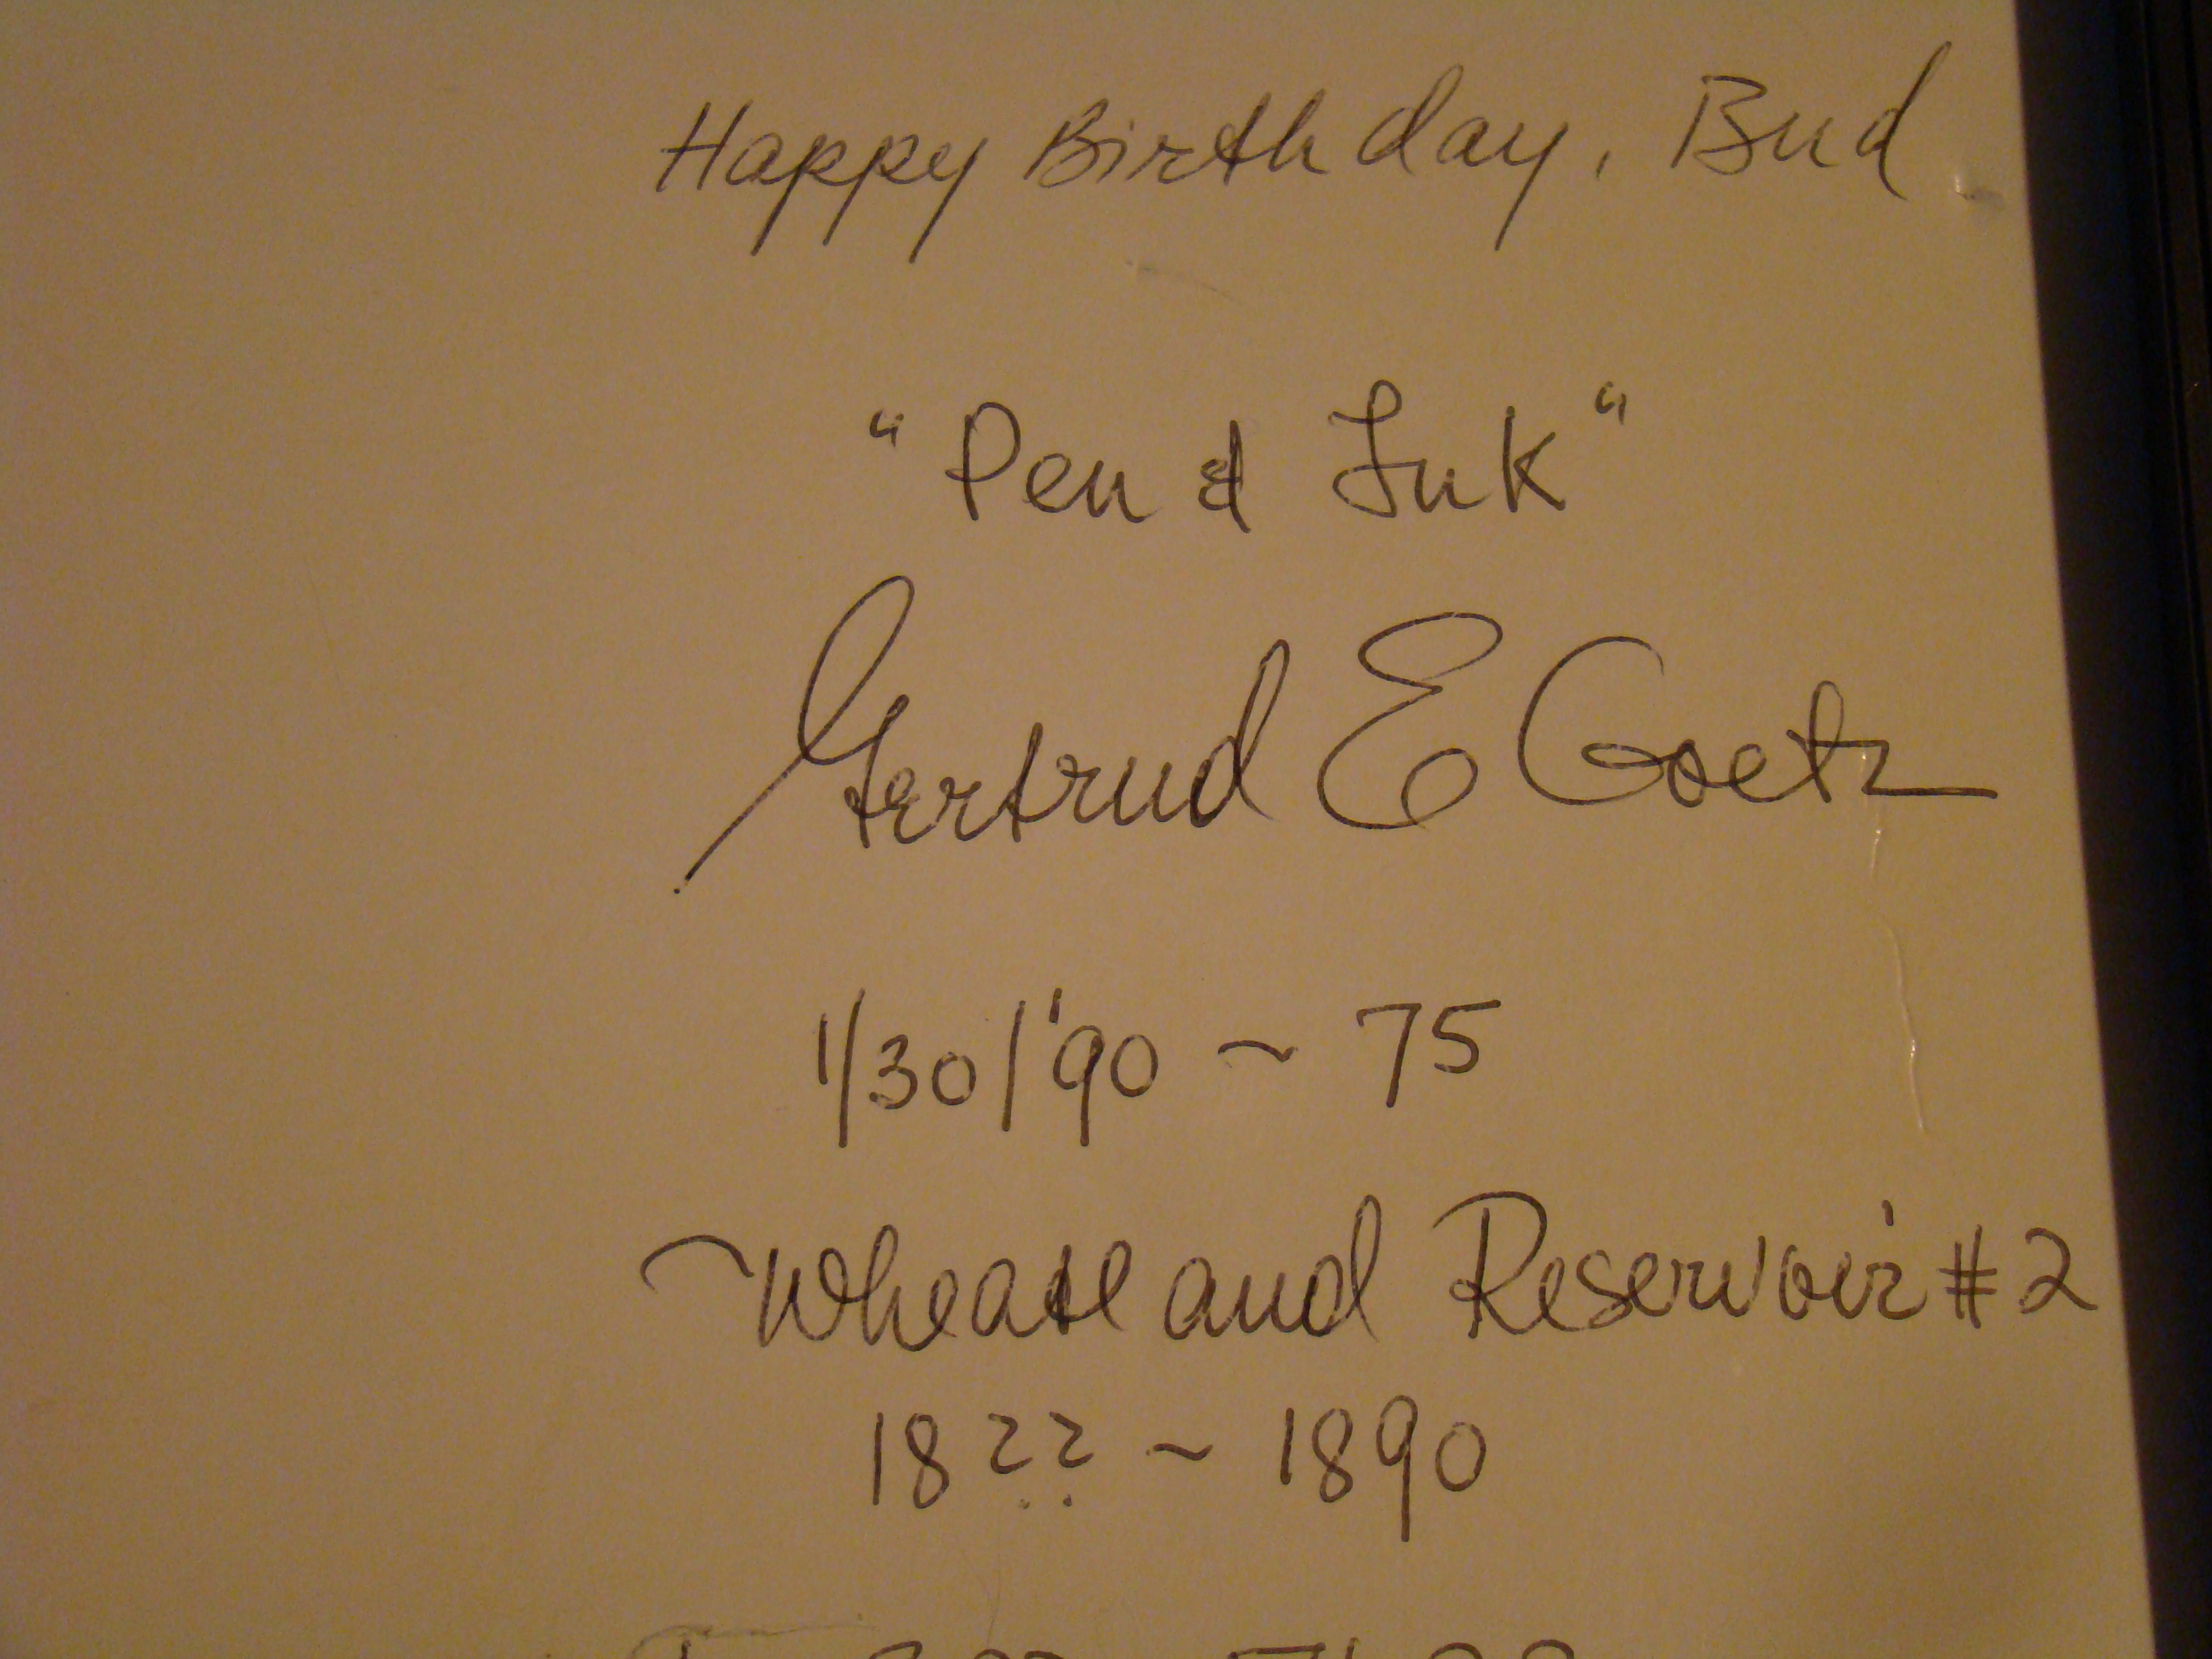 Happy Birthday, Bud
"Pen & Ink"
Gertrud E Goetz
1/30/'90 ~ 75
~ Wheatland Reservoir #2
18?? ~ 1890